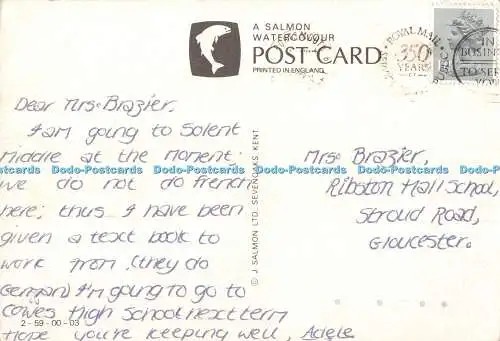 A SALMON
WATERCOLOUR
POST CARD
PRINTED IN ENGLAND
ROYAL MAIL
350
YEARS
IN
BUSINE
TO SE
YOU
Dear Mrs. Brazier,
I am going to Solent
Middle at the moment.
we do not do french
here; thus I have been
given a text book to
work from, (they do
German) I'm going to go to
Cowes High School next term
Hope you're keeping well, Adele
Mrs. Brazier,
Ribston Hall School,
Stroud Road,
Gloucester.
© J SALMON LTD. SEVENOAKS. KENT
2-59-00-03
Dodo-Postcards Dodo-Postcards Dodo-Postcards Dodo-Postcards Dodo-Postcards